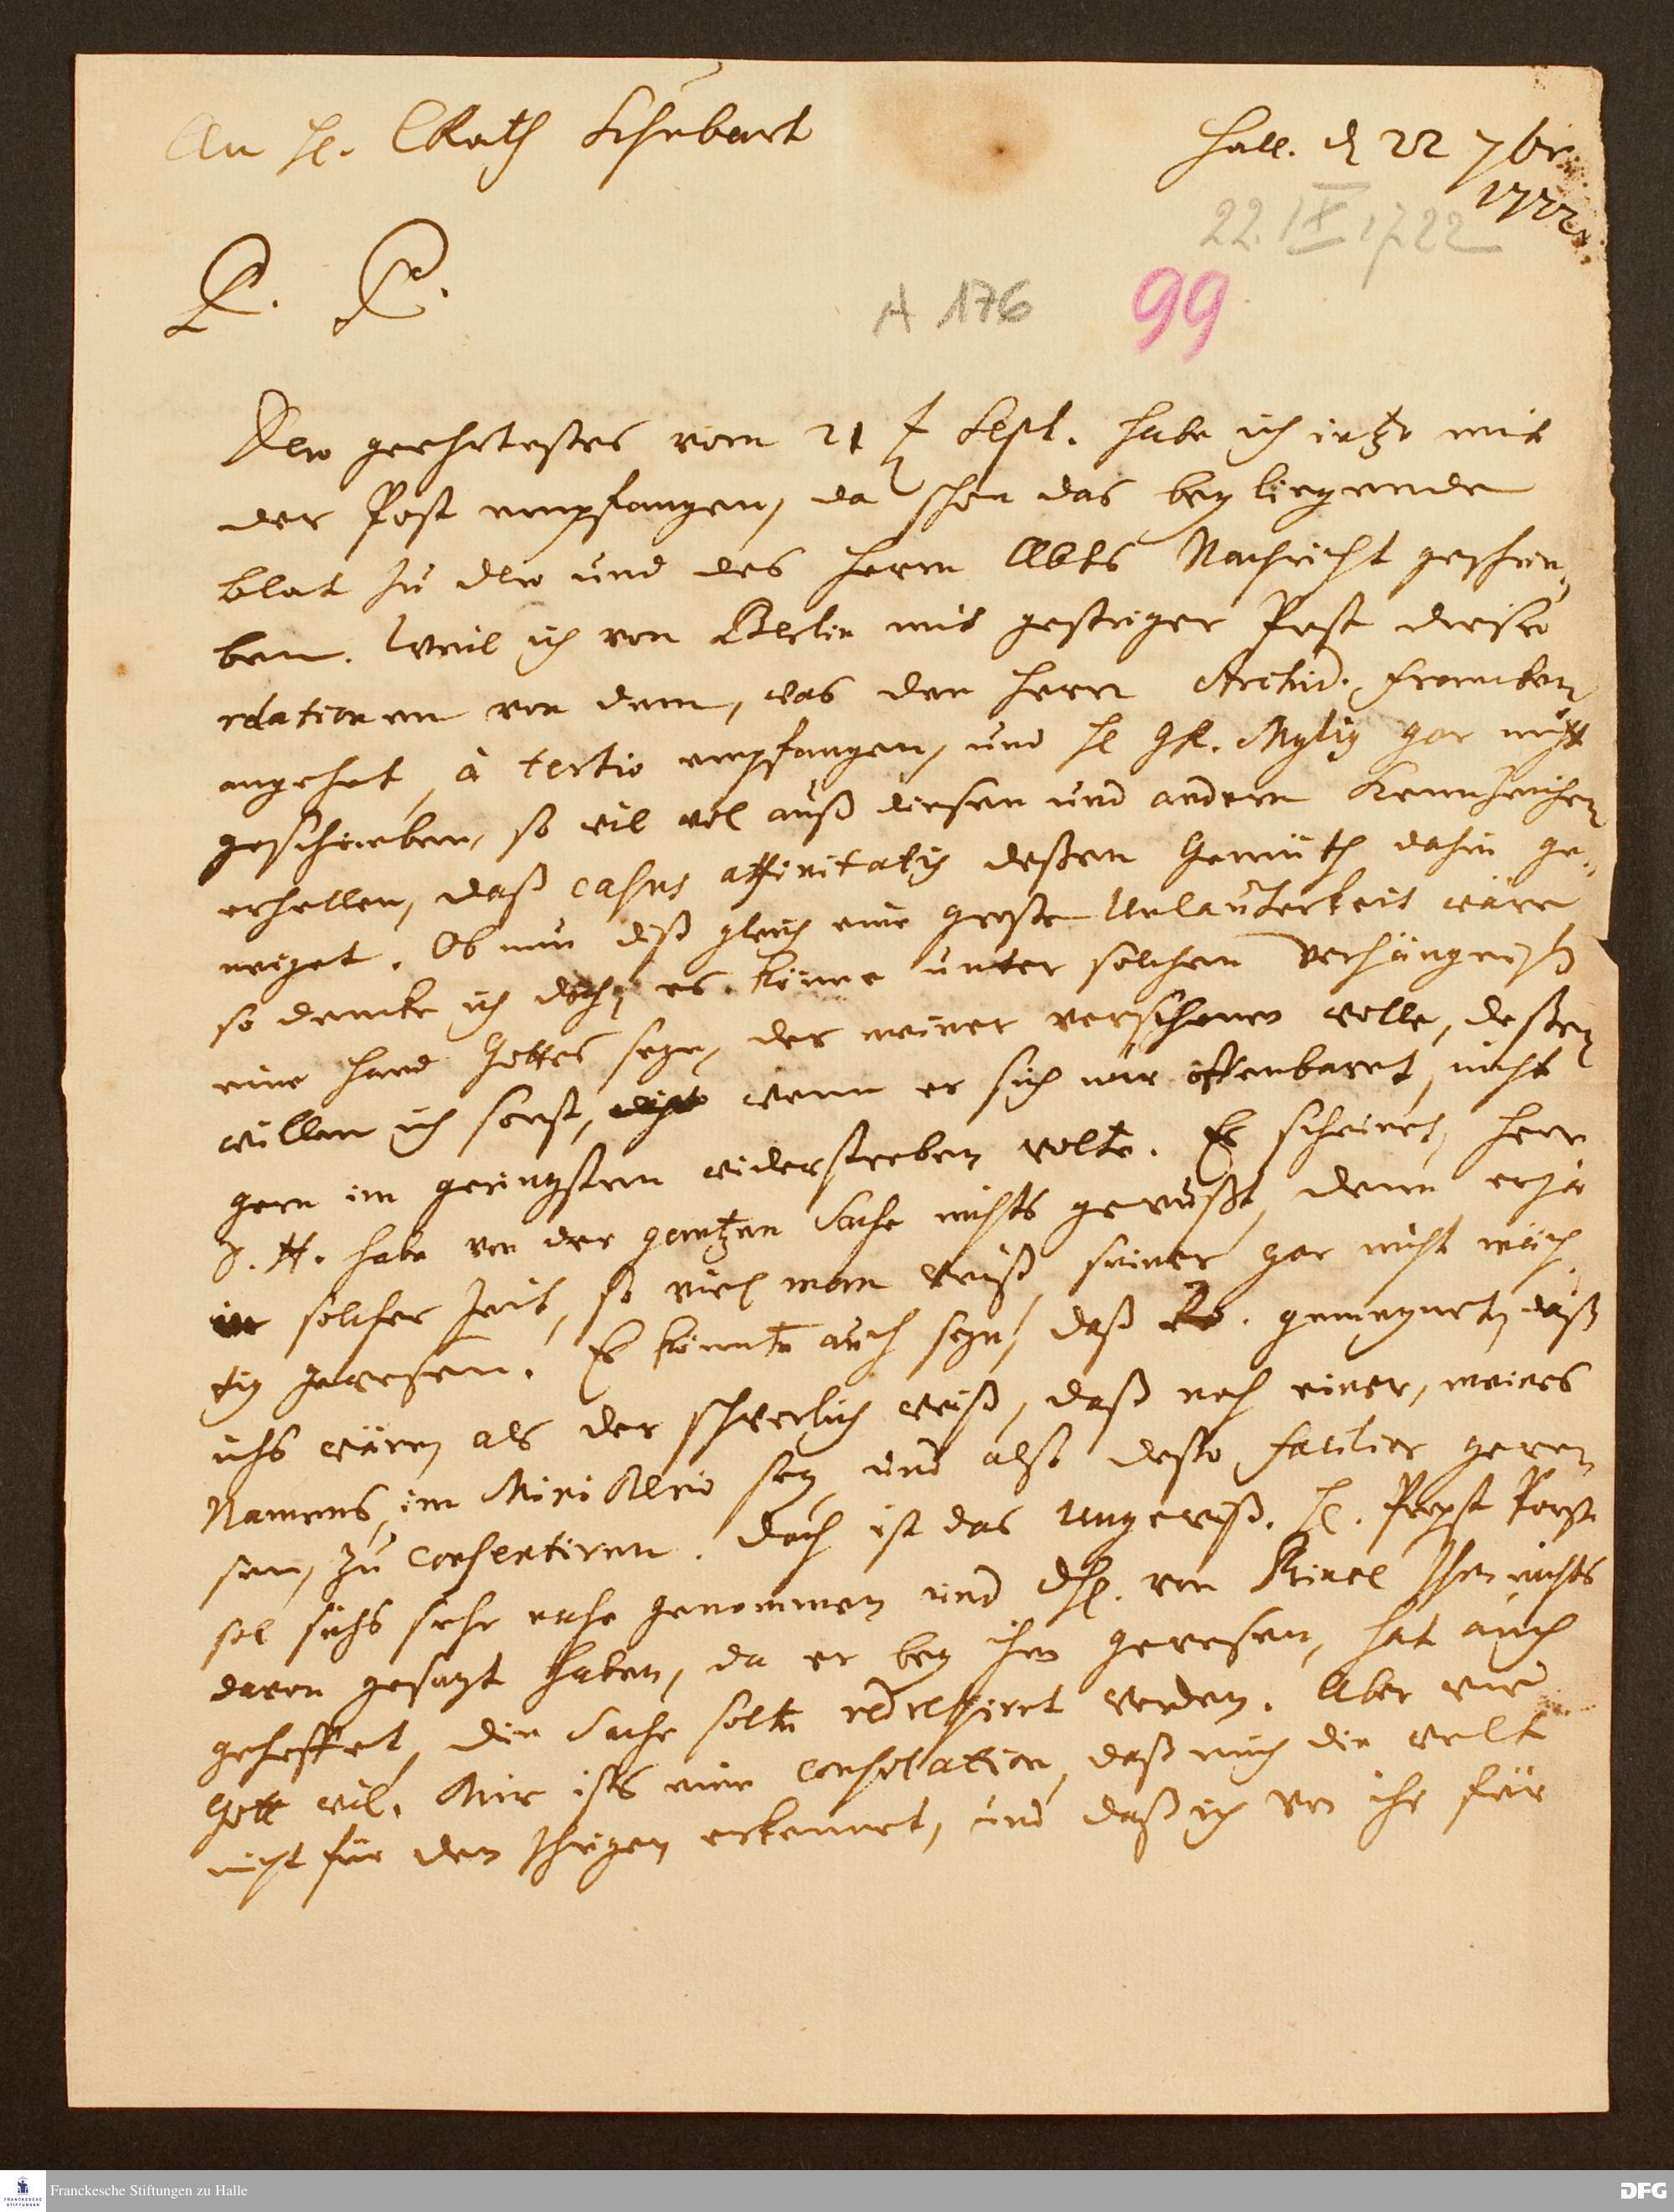 An H. CRath Schubart
Hall. d 22 7br.
1722.
22. IX 1722
A 176 99
Dero geehrtestes vom 21 Sept. habe ich ietzo mit
der Post empfangen, da schon das beyliegende
blat zu dero und des Herrn Abts Nachricht geschrie-
ben. Weil ich von Berlin mit gestriger Post diese
relationem von dem, was den Herrn Archid.
angehet, à tertio empfangen, und H. Mylig gar nicht
geschrieben, so wil wol auß diesen und andern Kennzeichen
erhellen, daß casus affinitatis deßen Gemüth dahin ge-
neiget. Ob nun diß gleich eine große Unlauterkeit wäre
so dencke ich doch, es könne unter solchem Verhängniß
eine Hand Gottes seyn, der meiner verschonen wolle, deßen
willen ich sonst, wenn er sich mir offenbaret, nicht
gern im geringsten widerstreben wolte. Es scheinet, Herr
habe von der gantzen Sache nichts gewußt, denn er ja
solcher Zeit, so viel man weiß, seiner gar nicht mäch
tig gewesen. Es könnte auch seyn, daß gemeynet, daß
ichs wäre, als der schwerlich weiß, daß noch einer, meines
Namens, im Ministerio sey, und also desto facilior gewe
sen, zu consentiren. Doch ist das ungewiß. H. Propst Porst
sol sichs sehr nahe genommen und von ihm nichts
davon gesagt haben, da er bey ihm gewesen, hat auch
gehoffet, die Sache solte redressiret werden. Aber wie
Gott wil. Mir ists eine consolation, daß mich die welt
nicht für den Ihrigen erkennet, und daß ich von ihr für
Franckesche Stiftungen zu Halle
FRANCKESCHE STIFTUNGEN
DFG